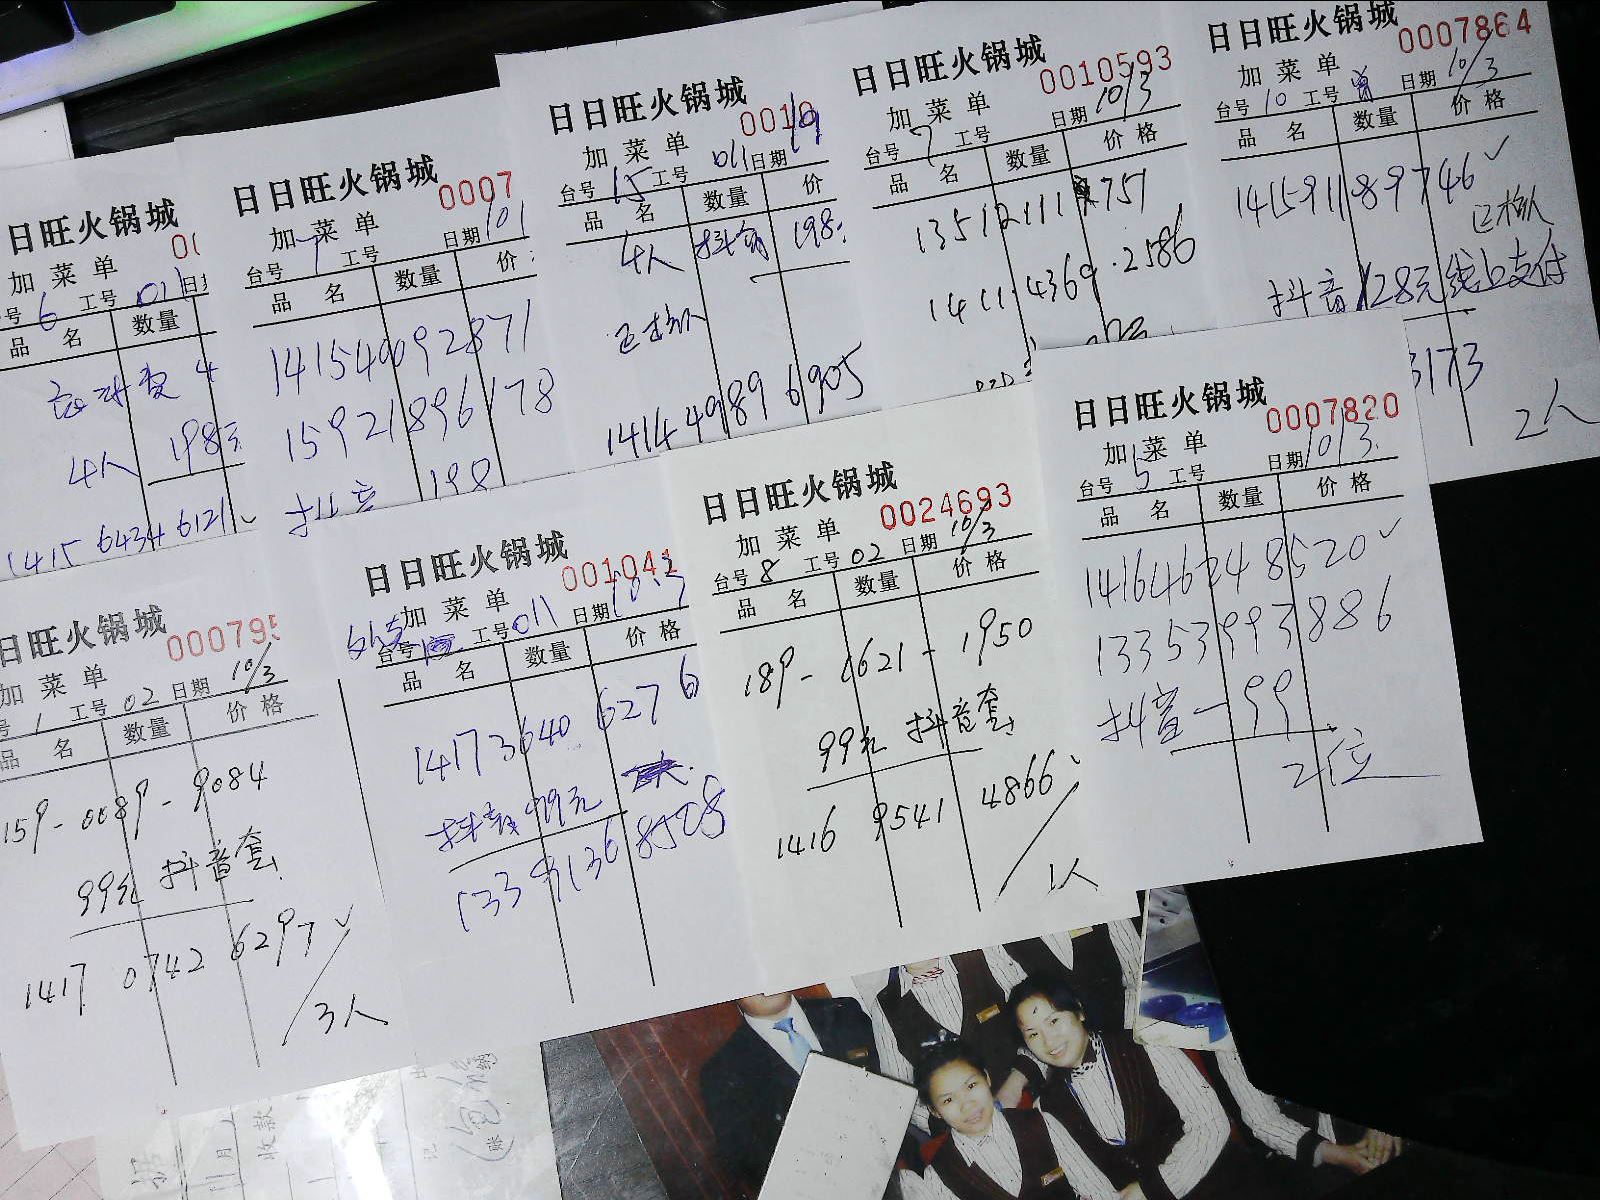 日日旺火锅城
加菜单
号 6 工号 011
品 名 数量
4人 198元
1415 6434 6121
日日旺火锅城 0007
加菜单
台号 7 工号 日期 10
品 名 数量 价
141549092871
15921896178
抖音 198
日日旺火锅城
加菜单
台号 15 工号 011 日期
品 名 数量 价
4人 抖音 198
已核人
1414 4989 6905
日日旺火锅城 0010593
加菜单
台号 7 工号 日期 10/3
品 名 数量 价格
1411 4369 2586
日日旺火锅城 0007864
加菜单
台号 10 工号 日期 10/3
品 名 数量 价格
141591189746
已核人
抖音128元线上支付
3173
2人
日旺火锅城 000795
加菜单
号 1 工号 02 日期 10/3
品 名 数量 价格
159-0089-9084
99元 抖音套
1417 0742 6297
3人
日日旺火锅城 001041
加菜单
台号 工号 011 日期 10.3
品 名 数量 价格
14173640 6276
抖音99元
1339136 8528
日日旺火锅城 0024693
加菜单
台号 8 工号 02 日期 10/3
品 名 数量 价格
189-1621-1950
99元 抖音套
1416 9541 4866
1人
日日旺火锅城 0007820
加菜单
台号 5 工号 日期 10/3.
品 名 数量 价格
141646248520
13353993886
抖音-99
2位
收款